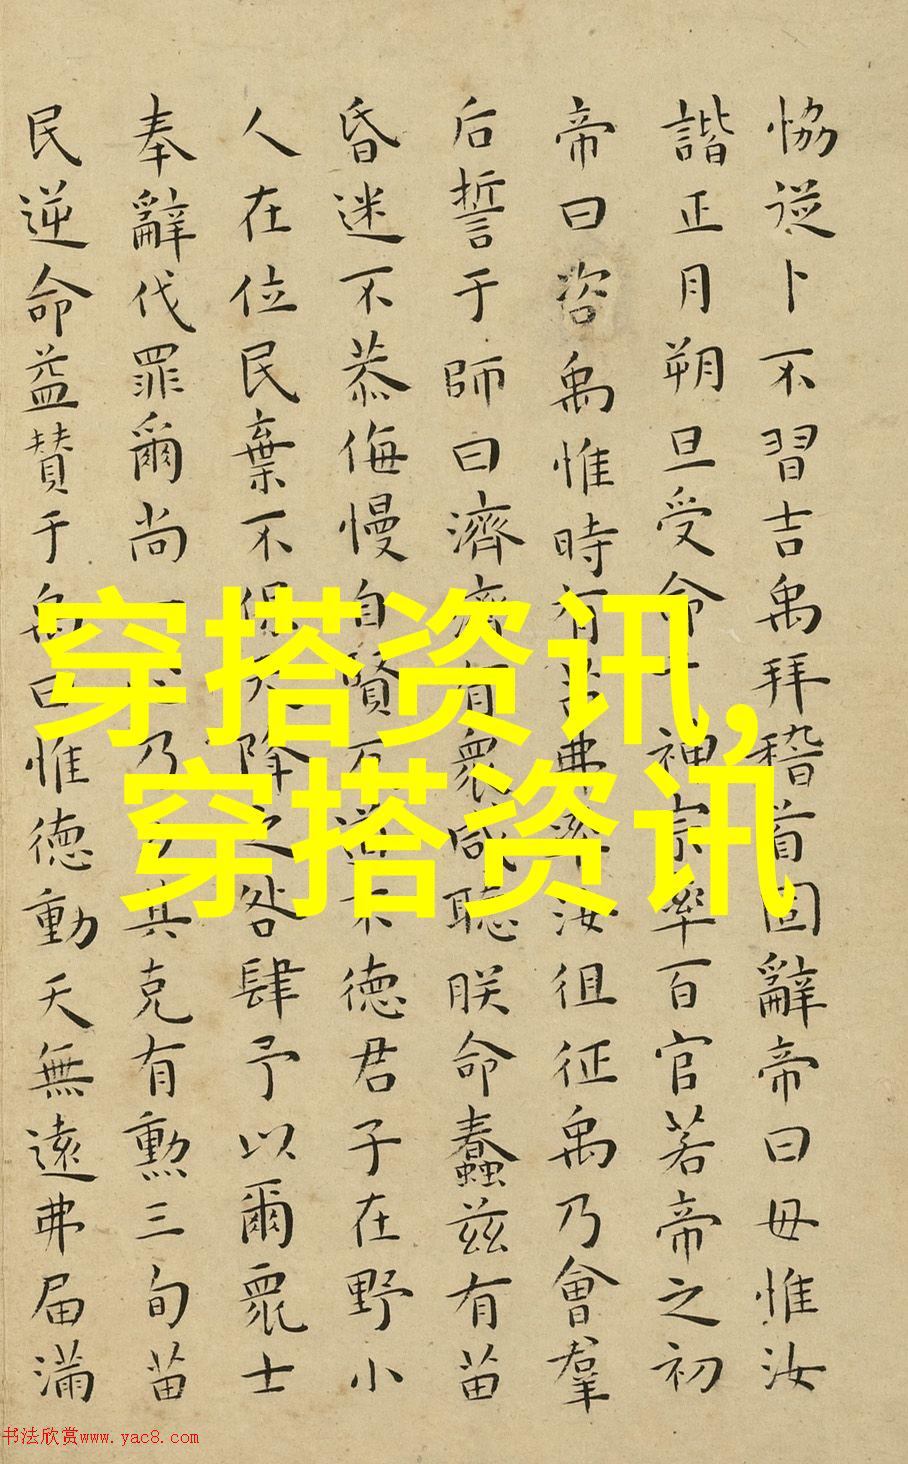 恊從卜不習吉禹拜稽首固辭帝曰毋惟汝
諧正月朔旦受命于神宗率百官若帝之初
帝曰咨禹惟時有苗弗率汝徂征禹乃會羣
后誓于師曰濟濟有衆咸聽朕命蠢茲有苗
昏迷不恭侮慢自賢反道德君子在野小
人在位民棄不保天降之咎肆予以爾衆士
奉辭伐罪爾尚一乃其克有勳三旬苗
民逆命益贊于禹曰惟德動天無遠弗届滿
穿搭资讯,
穿搭资讯
书法欣赏www.yac8.com